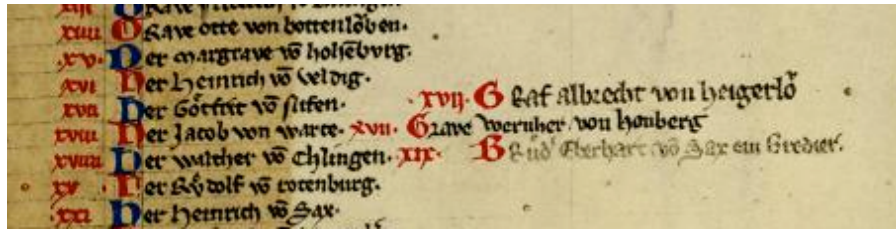 xiiii Grave otte von bottenlŏben.
xv. Der margrave vō hohēburg.
xvi Her Heinrich vō veldig.
xvii Her Gŏtfrit vō nifen. xvij. Graf albrecht von heigerlo
xviii Her Jacob von warte. xvii. Grave wernher von honberg
xviiii Her walther vō Chlingen. xix Brud' Eberhart vō Sax ein Bredier.
xx Her Rŭdolf vō rotenburg.
xxi Her Heinrich vō Sax.